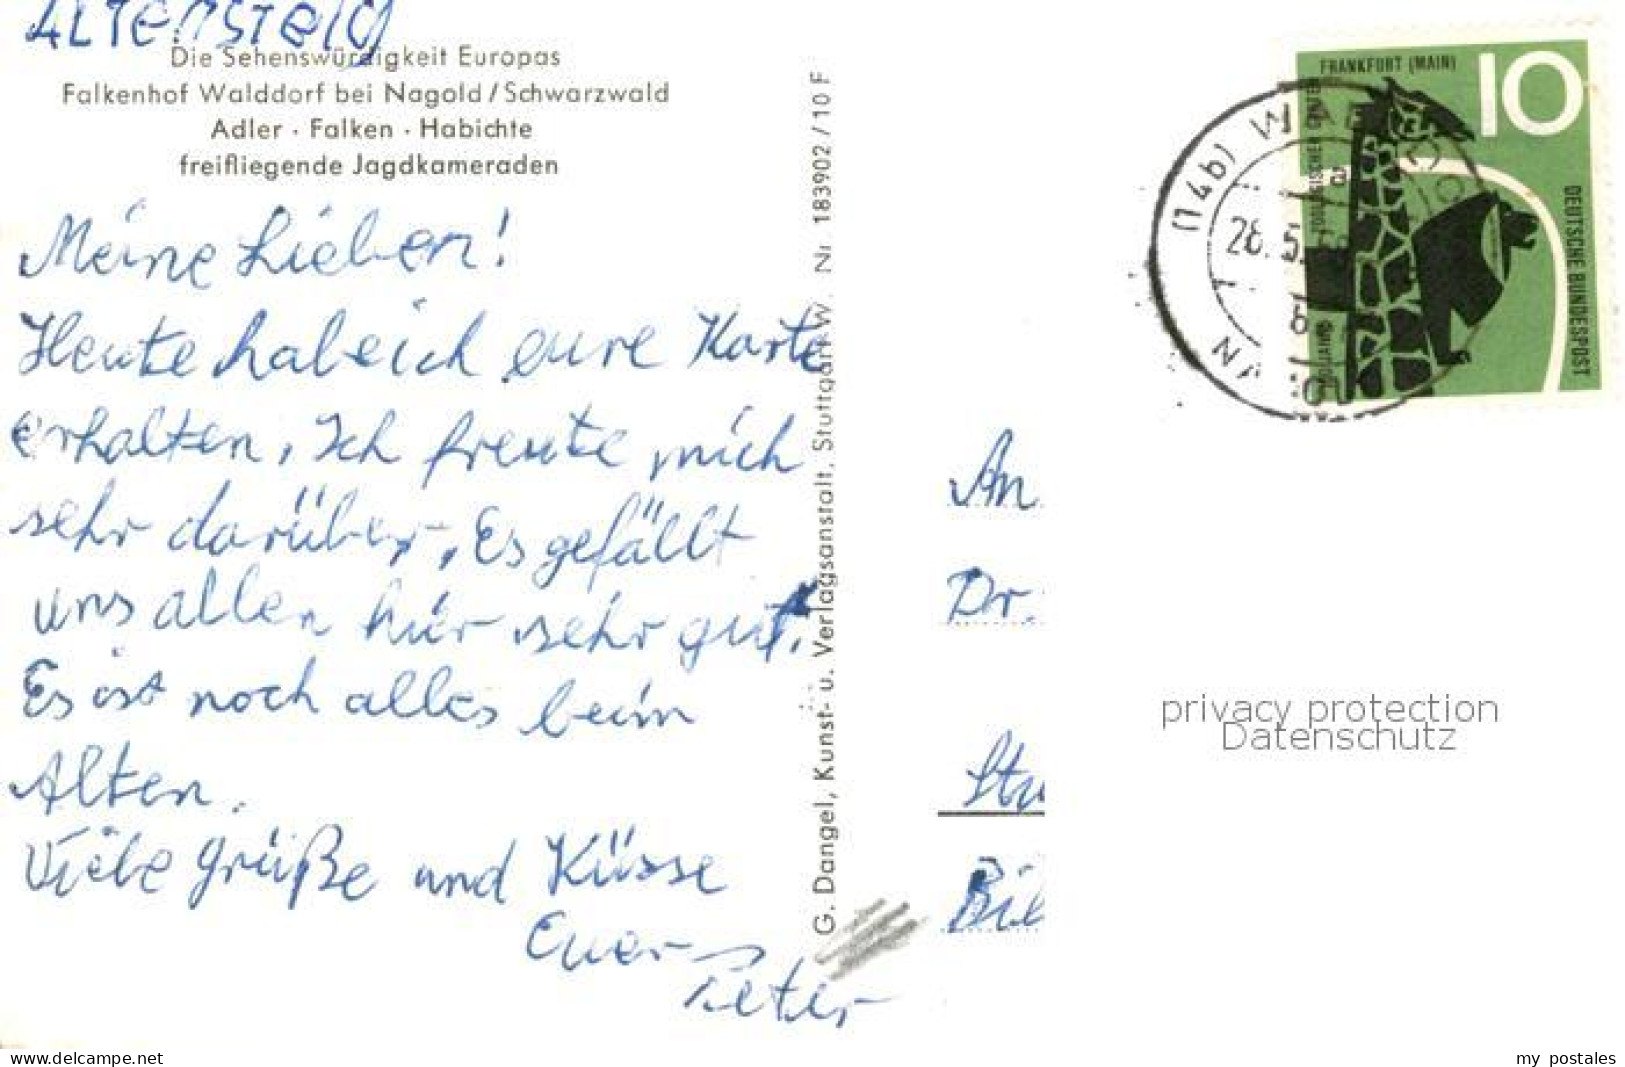 ALTENSTEIG
Die Sehenswürdigkeit Europas
Falkenhof Walddorf bei Nagold / Schwarzwald
Adler · Falken · Habichte
freifliegende Jagdkameraden
Meine Lieben!
Heute habe ich eure Karte
erhalten, Ich freute mich
sehr darüber, Es gefällt
uns allen hier sehr gut.
Es ist noch alles beim
Alten.
Viele Grüße und Küsse
Euer
Peter
G. Dangel, Kunst- u. Verlagsanstalt, Stuttgart-W. Nr. 183902 / 10 F
FRANKFURT (MAIN)
10
DEUTSCHE BUNDESPOST
(14b) WALDDO
28.5.
An
Dr.
Stu
Bil
privacy protection
Datenschutz
www.delcampe.net
my postales